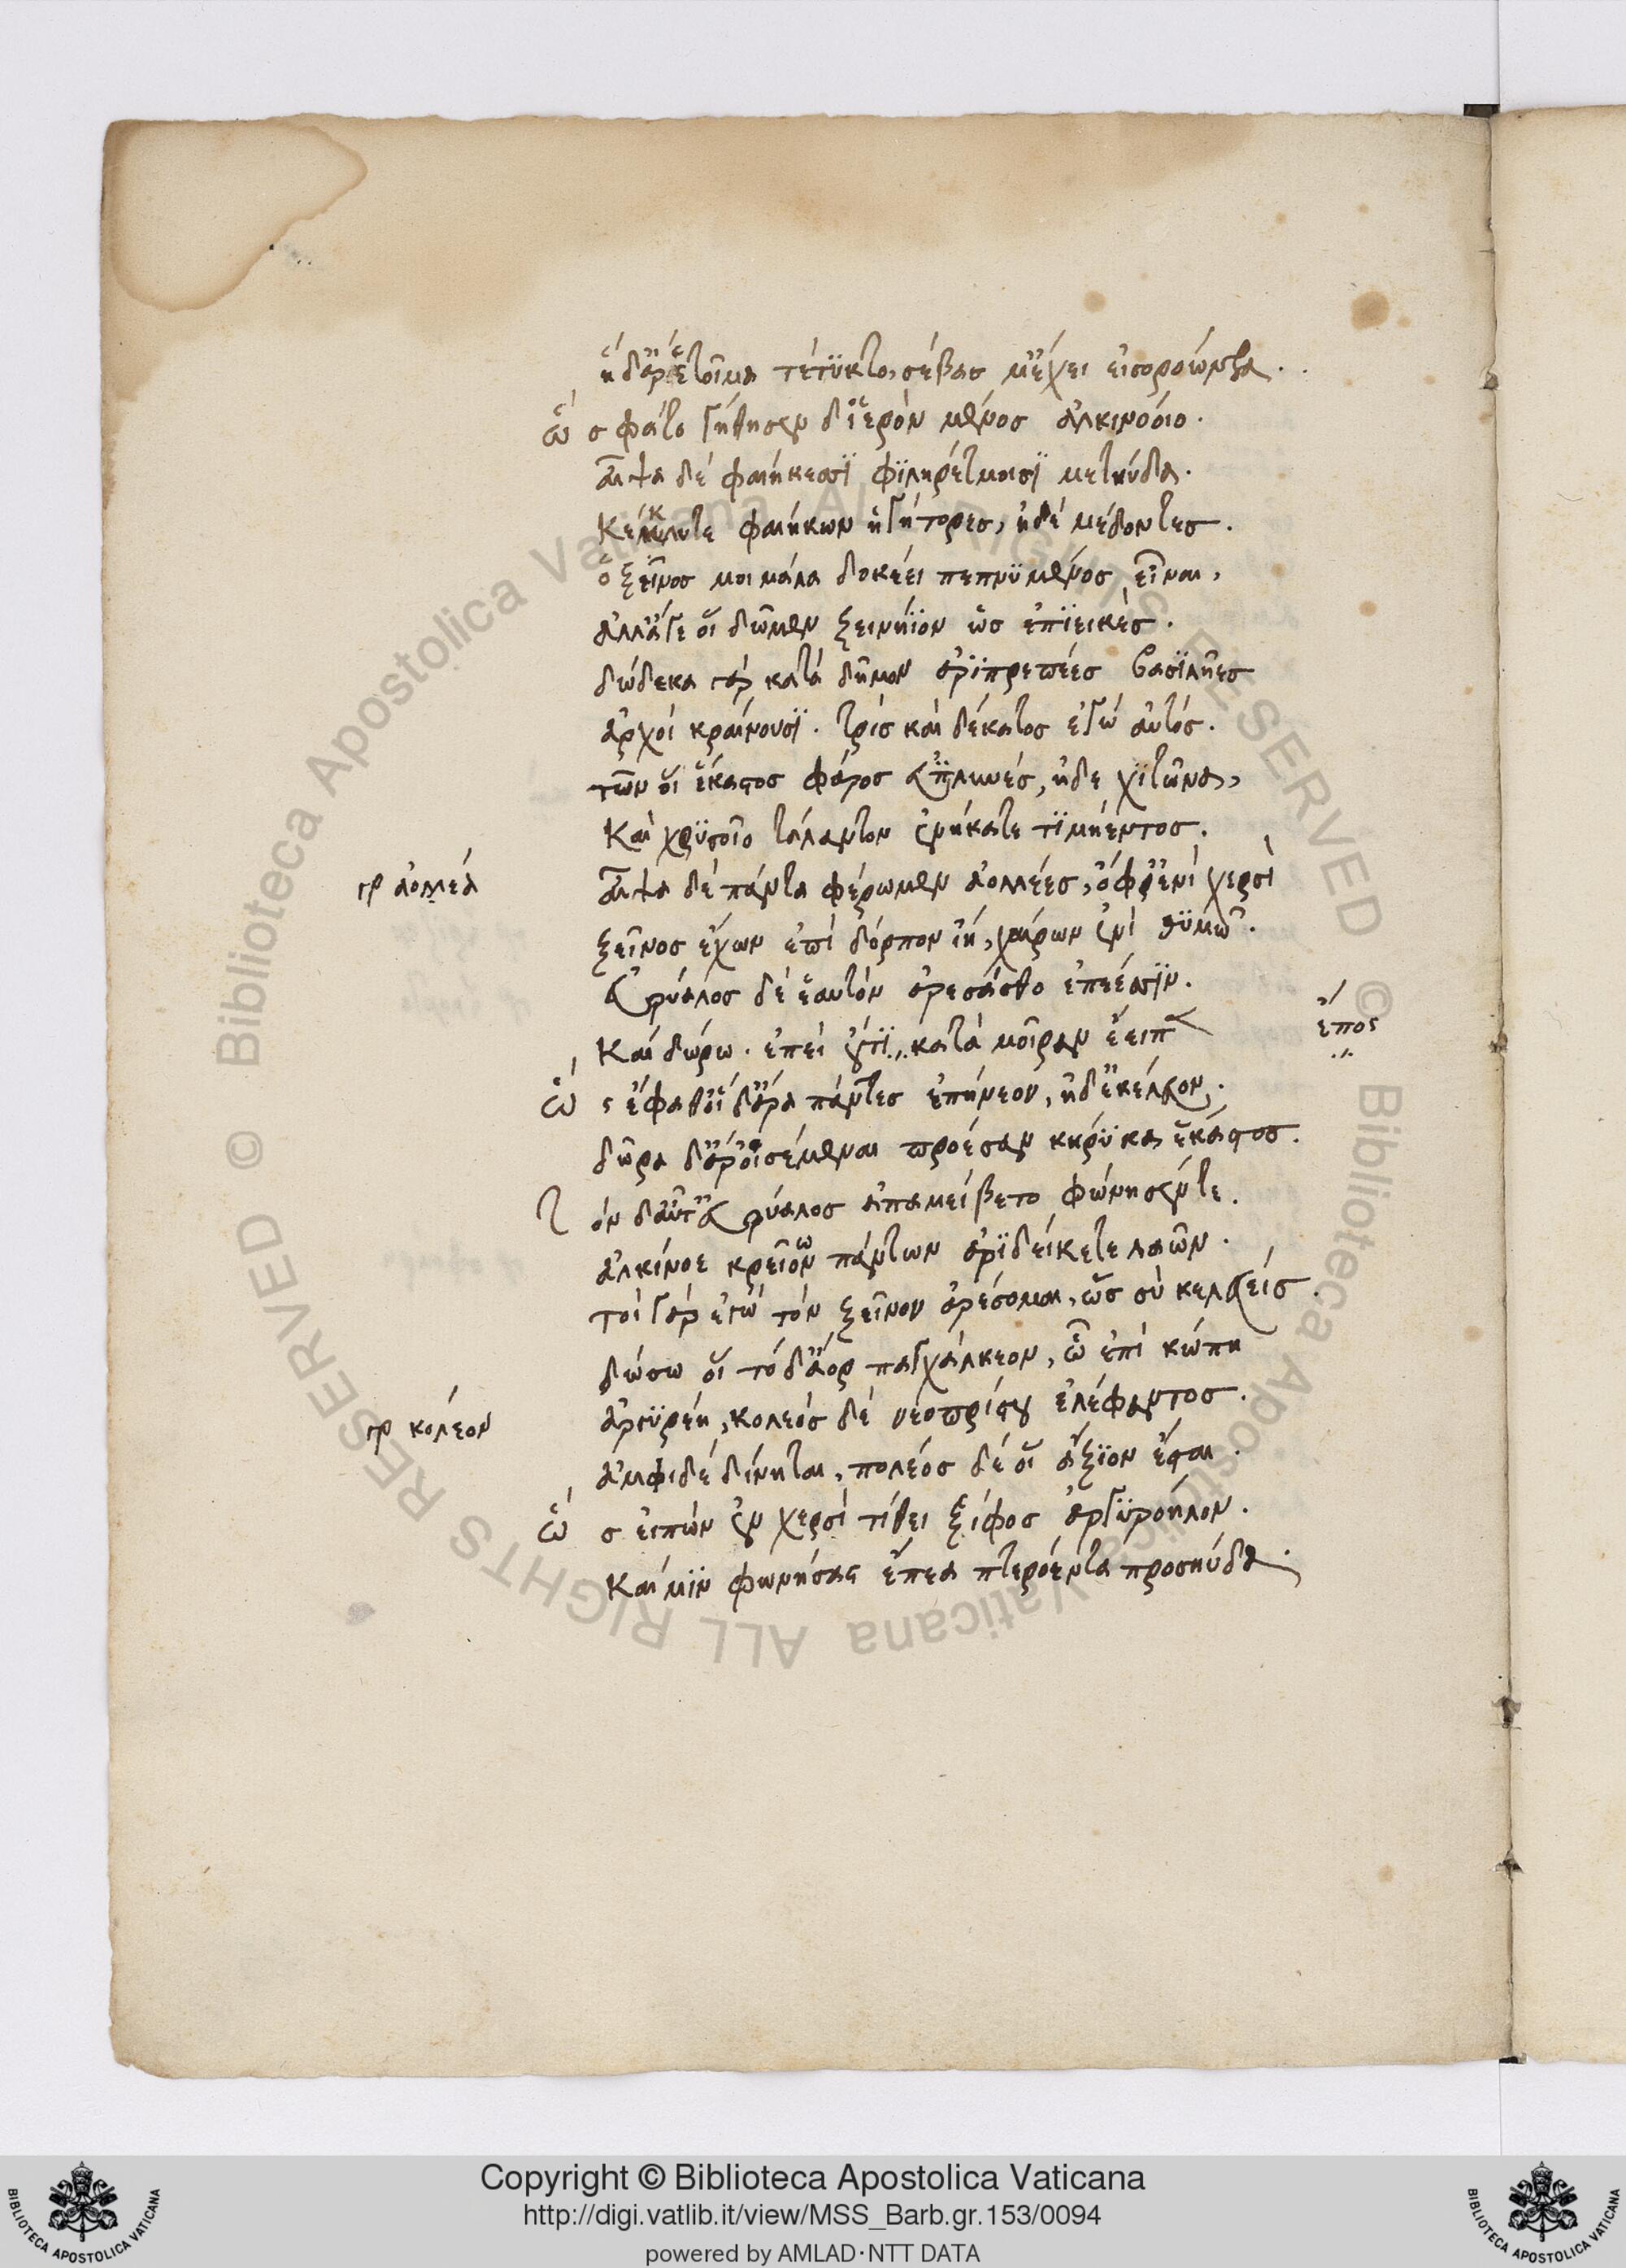 ἡδ᾽ ἄρ᾽ ἑτοῖμα τέτϋκτο, σέβας μ᾽ ἔχει εἰσορόωντα.
ὣς φάτο γήθησεν δ᾽ ἱερὸν μένος ἀλκινόοιο.
αἶψα δὲ φαιήκεσσϊ φϊληρέτμοισϊ μετηύδα.
Κέκλυτε φαιήκων ἡγήτορες, ἠδὲ μέδοντες.
ὁ ξεῖνος μοι μάλα δοκέει πεπνϋμένος εἶναι,
ἀλλ᾽ ἄγε οἱ δῶμεν ξεινήϊον ὡς ἐπϊεικές.
δώδεκα γὰρ κατὰ δῆμον ἀρϊπρεπέες βασϊλῆες
ἀρχοὶ κραίνουσϊ. τρὶς καὶ δέκατος ἐγὼ αὐτός.
τῶν οἱ ἕκαστος φάρος ἐϋπλυνὲς, ἠδὲ χϊτῶνα,
Καὶ χρϋσοῖο τάλαντον ἐνείκατε τϊμήεντος.
γρ ἀολλέα
αἶψα δὲ πάντα φέρωμεν ἀολλέες, ὄφρ᾽ ἐνὶ χερσὶ
ξεῖνος ἔχων ἐπὶ δόρπον ἴῃ, χαίρων ἐνὶ θϋμῶ.
Εὐρύαλος δέ ἑαυτὸν ἀρεσάσθο ἐπέεσσϊν.
Καὶ δώρω. ἐπεὶ οὔτϊ κατὰ μοῖραν ἔειπεν
ἔπος
ὣς ἔφαθ᾽ οἱ δ᾽ ἄρα πάντες ἐπήνεον, ἠδ᾽ ἐκέλευον.
δῶρα δ᾽ ἄρ᾽ οἰσέμεναι προέσαν κήρϋκα ἕκαστος.
Τὸν δ᾽ αὖτ᾽ Εὐρύαλος ἀπαμείβετο φώνησέν τε.
ἀλκίνοε κρεῖον πάντων ἀρϊδείκετε λαῶν.
τοὶ γὰρ ἐγὼ τὸν ξεῖνον ἀρέσομαι, ὡς σὺ κελεύεις.
δώσω οἱ τόδ᾽ ἄορ παγχάλκεον, ᾧ ἐπὶ κώπη
γρ κολέον
ἀργϋρέη, κολεὸς δὲ νεοπρίστου ἐλέφαντος.
ἀμφιδέ δίνηται, πολεός δέ οἱ ἄξϊον ἔσται.
ὣς εἰπὼν ἐν χερσὶ τίθει ξίφος ἀργϋρόηλον.
Καί μϊν φωνήσας ἔπεα πτερόεντα προσηύδα.
Copyright © Biblioteca Apostolica Vaticana
http://digi.vatlib.it/view/MSS_Barb.gr.153/0094
powered by AMLAD·NTT DATA